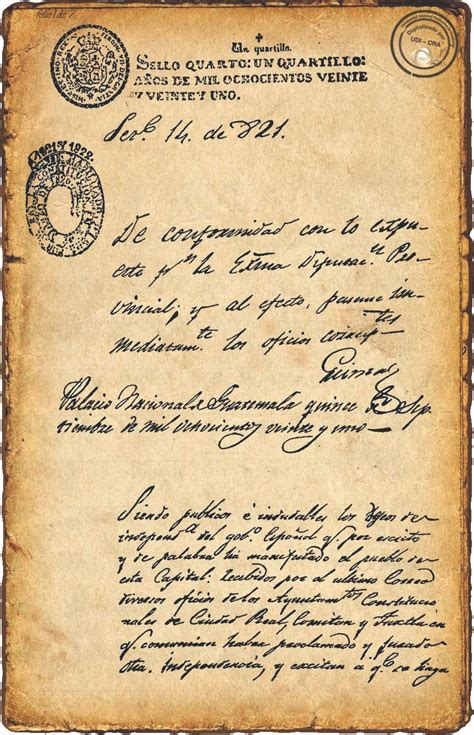 Folio 1 de 7
Digitalizado por
UDI - CRA
Un quartillo.
SELLO QUARTO: UN QUARTILLO:
AÑOS DE MIL OCHOCIENTOS VEINTE
Y VEINTE Y UNO.
14. de 821.
De conformidad con lo expu-
esto pr. la Exma Diputac.n Pro-
vincial; y al efecto, pasense in-
mediatam.te los oficios
Palacio Nacional de Guatemala quince de Sep-
tiembre de mil ochocientos veinte y uno
Siendo publicos é indudables los deseos de
independ.a del gob.o Español q. por escrito
y de palabra ha manifestado el pueblo de
esta Capital: Recibidos por el ultimo Correo
diversos oficios de los Ayuntam.tos Constitucio-
nales de Ciudad Real, Comitan y Tuxtla en
q. comunican haber proclamado y jurado
dha. independencia, y excitan a q. se haga